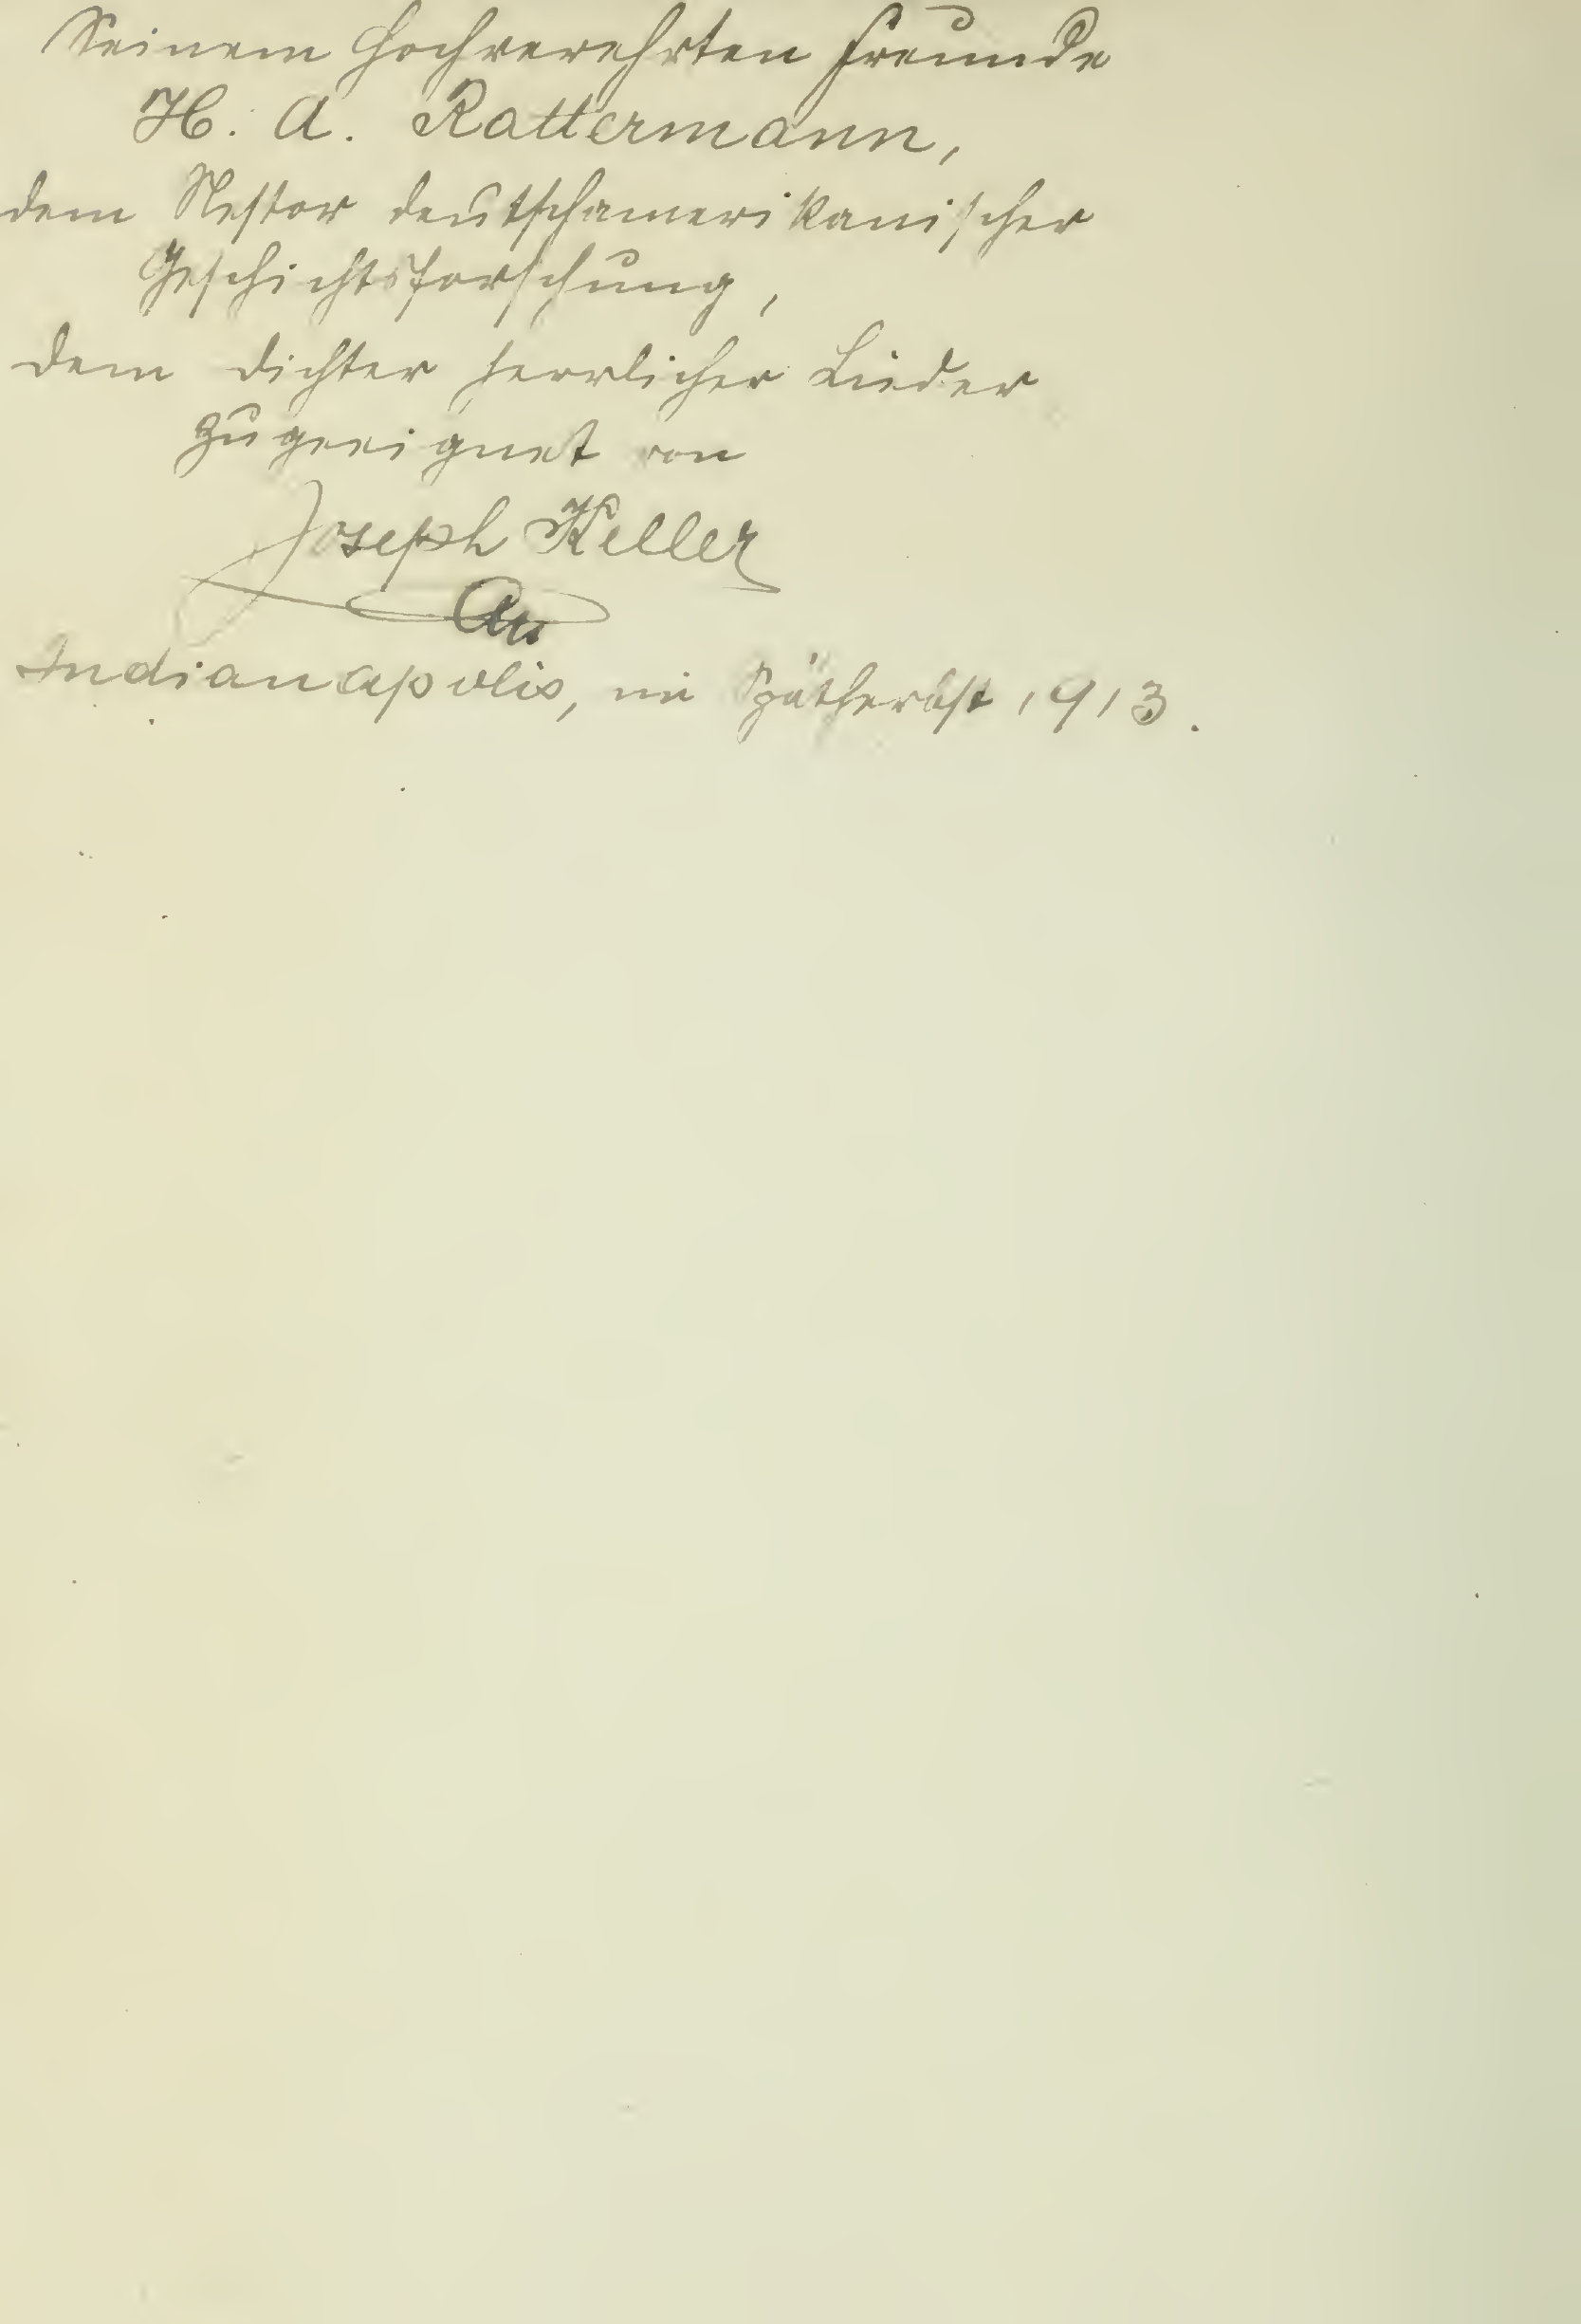 Seinem hochverehrten Freunde
H. A. Rattermann,
dem Nestor deutschamerikanischer
Geschichtsforschung,
dem Dichter herrlicher Lieder
zugeeignet von
Joseph Keller
Indianapolis, im Spätherbst 1913.